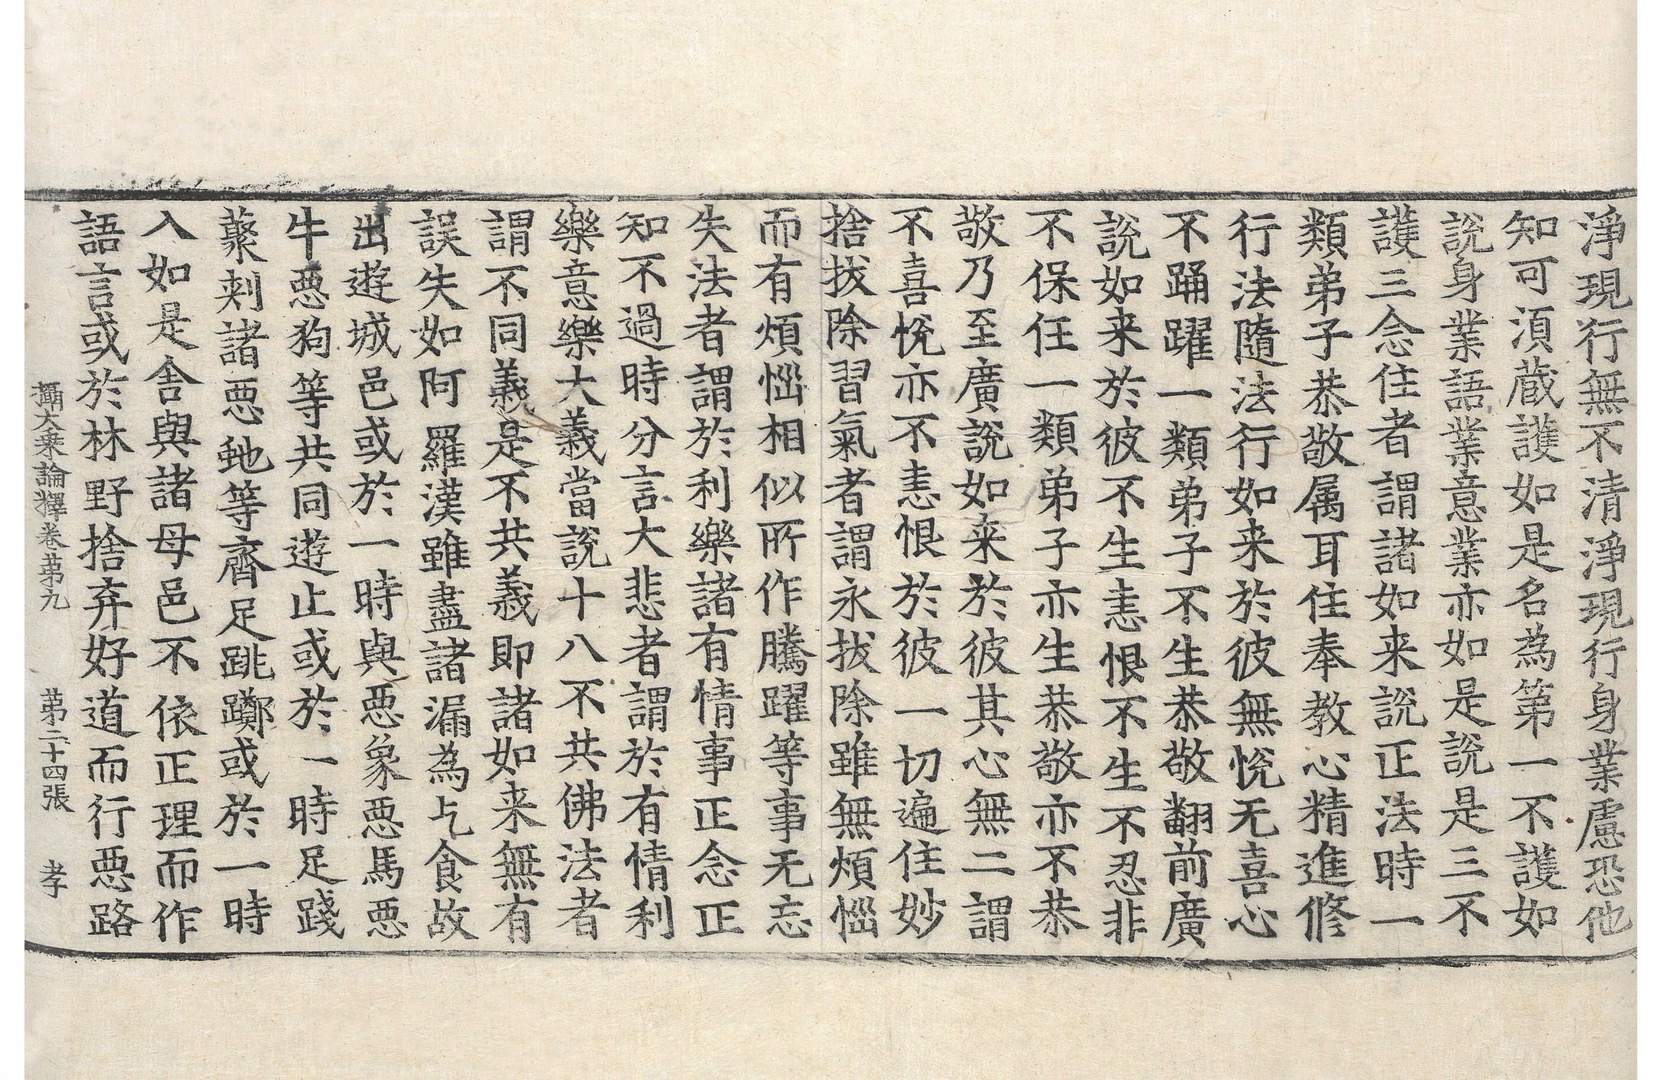 淨現行無不清淨現行身業慮恐他
知可湏藏護如是名為第一不護如
說身業語業意業亦如是說是三不
護三念住者謂諸如来說正法時一
類弟子恭敬属耳住奉教心精進修
行法隨法行如来於彼無悅无喜心
不踊躍一類弟子不生恭敬翻前廣
說如来於彼不生恚恨不生不忍非
不保任一類弟子亦生恭敬亦不恭
敬乃至廣說如来於彼其心無二謂
不喜悅亦不恚恨於彼一切遍住妙
捨拔除習氣者謂永拔除雖無煩惱
而有煩惱相似所作騰躍等事无忘
失法者謂於利樂諸有情事正念正
知不過時分言大悲者謂於有情利
樂意樂大義當說十八不共佛法者
謂不同義是不共義即諸如来無有
誤失如阿羅漢雖盡諸漏為乞食故
出遊城邑或於一時與惡象惡馬惡
牛惡狗等共同遊止或於一時足踐
藂刺諸惡虵等齊足跳躑或於一時
入如是舍與諸母邑不依正理而作
語言或於林野捨弃好道而行惡路
攝大乘論釋卷第九 第二十四張 孝